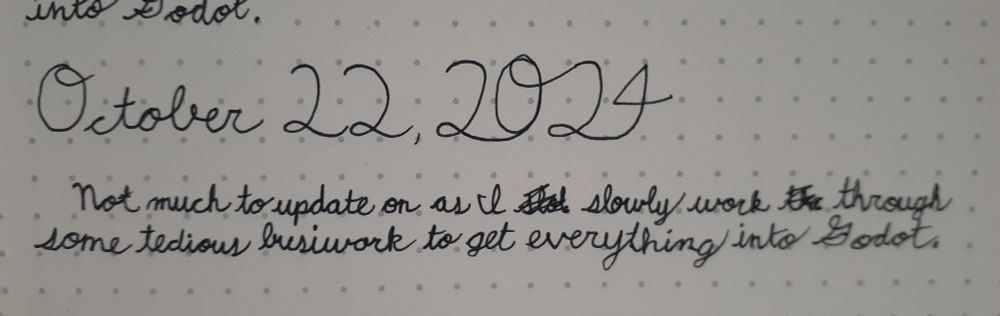 into Godot.
October 22, 2024
Not much to update on as I slowly work through
some tedious busiwork to get everything into Godot.